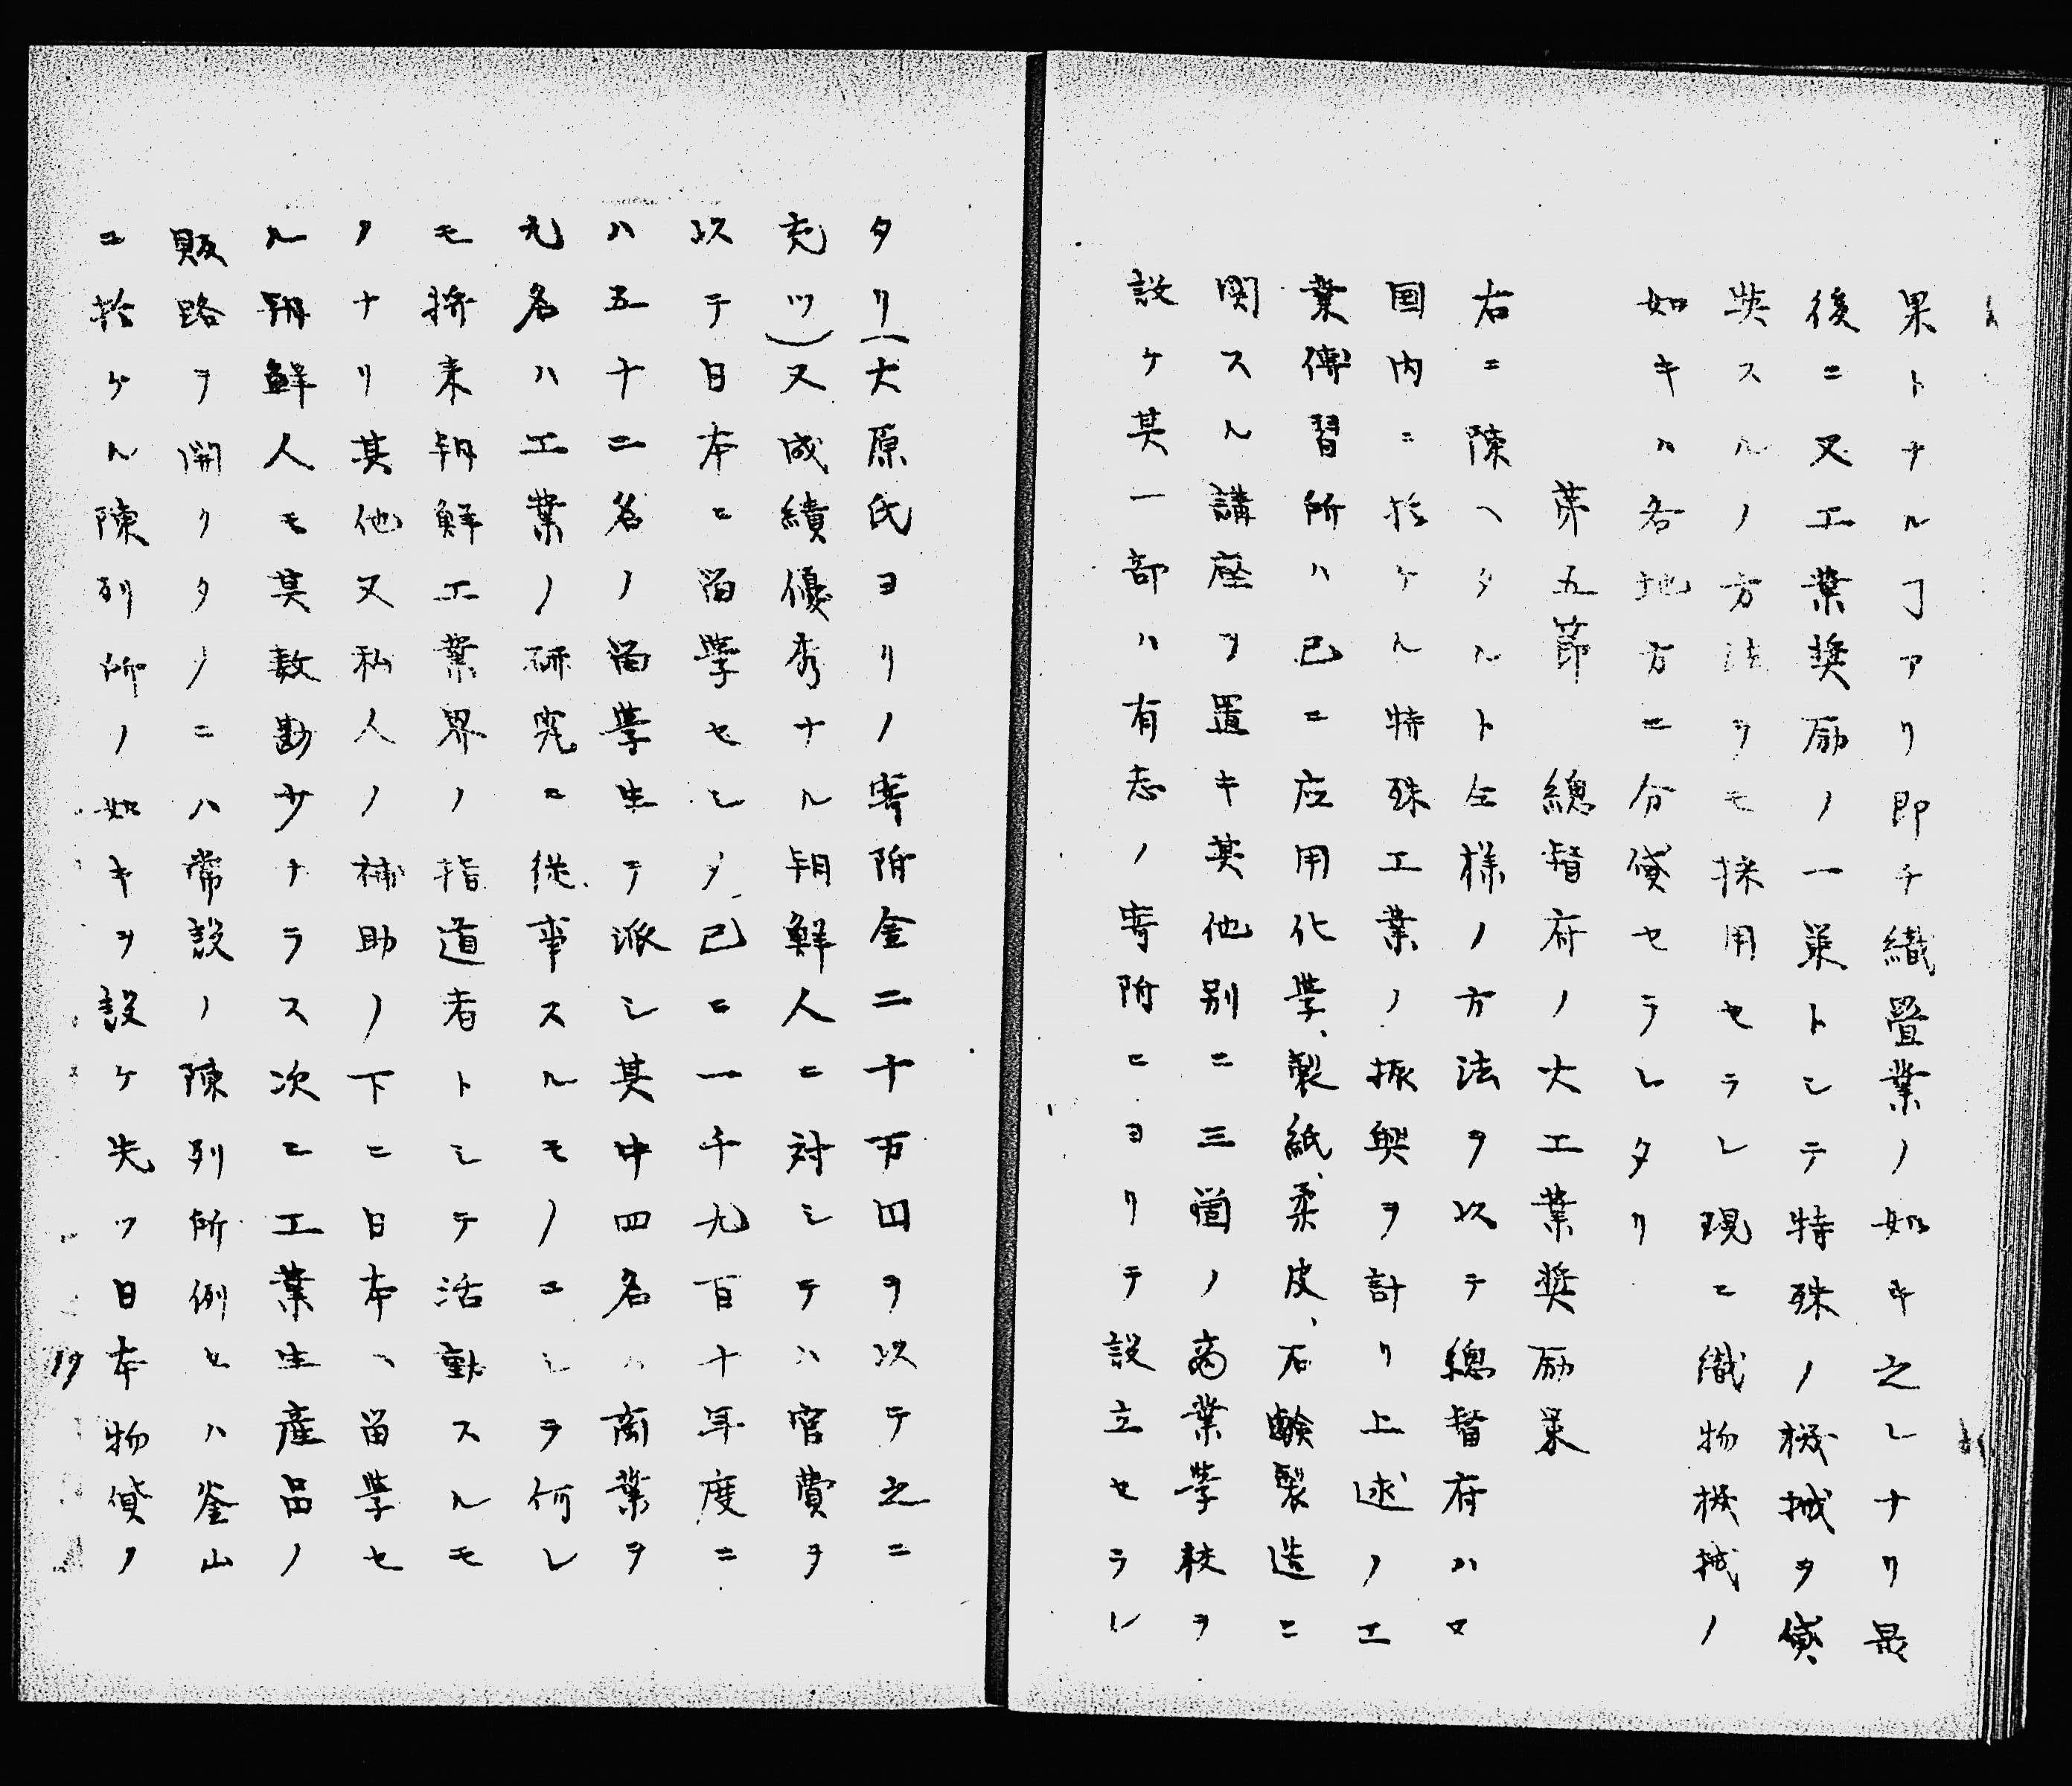 果トナルヿアリ即チ織畳業ノ如キ之レナリ最
後ニ又工業奨励ノ一策トシテ特殊ノ機械ヲ貸
与スルノ方法ヲモ採用セラレ現ニ織物機械ノ
如キハ各地方ニ分貸セラレタリ
第五節　總督府ノ大工業奨励策
右ニ陳ヘタルト仝様ノ方法ヲ以テ總督府ハ又
国内ニ於ケル特殊工業ノ振興ヲ計リ上述ノ工
業傳習所ハ已ニ应用化學、製紙、柔皮、石鹸製造ニ
関スル講座ヲ置キ其他別ニ三箇ノ商業學校ヲ
設ケ其一部ハ有志ノ寄附ニヨリテ設立セラレ
タリ(大原氏ヨリノ寄附金二十万円ヲ以テ之ニ
充ツ)又成績優秀ナル朝鮮人ニ対シテハ官費ヲ
以テ日本ニ留學セシメ已ニ一千九百十年度ニ
ハ五十二名ノ留學生ヲ派シ其中四名ハ商業ヲ
九名ハ工業ノ研究ニ従事スルモノニシヲ何レ
モ将来朝鮮工業界ノ指道者トシテ活動スルモ
ノナリ其他又私人ノ補助ノ下ニ日本ヘ留學セ
ル朝鮮人モ其数尠少ナラス次ニ工業生産品ノ
販路ヲ開クタメニハ常設ノ陳列所例セハ釜山
ニ於ケル陳列所ノ如キヲ設ケ先ツ日本物貨ノ